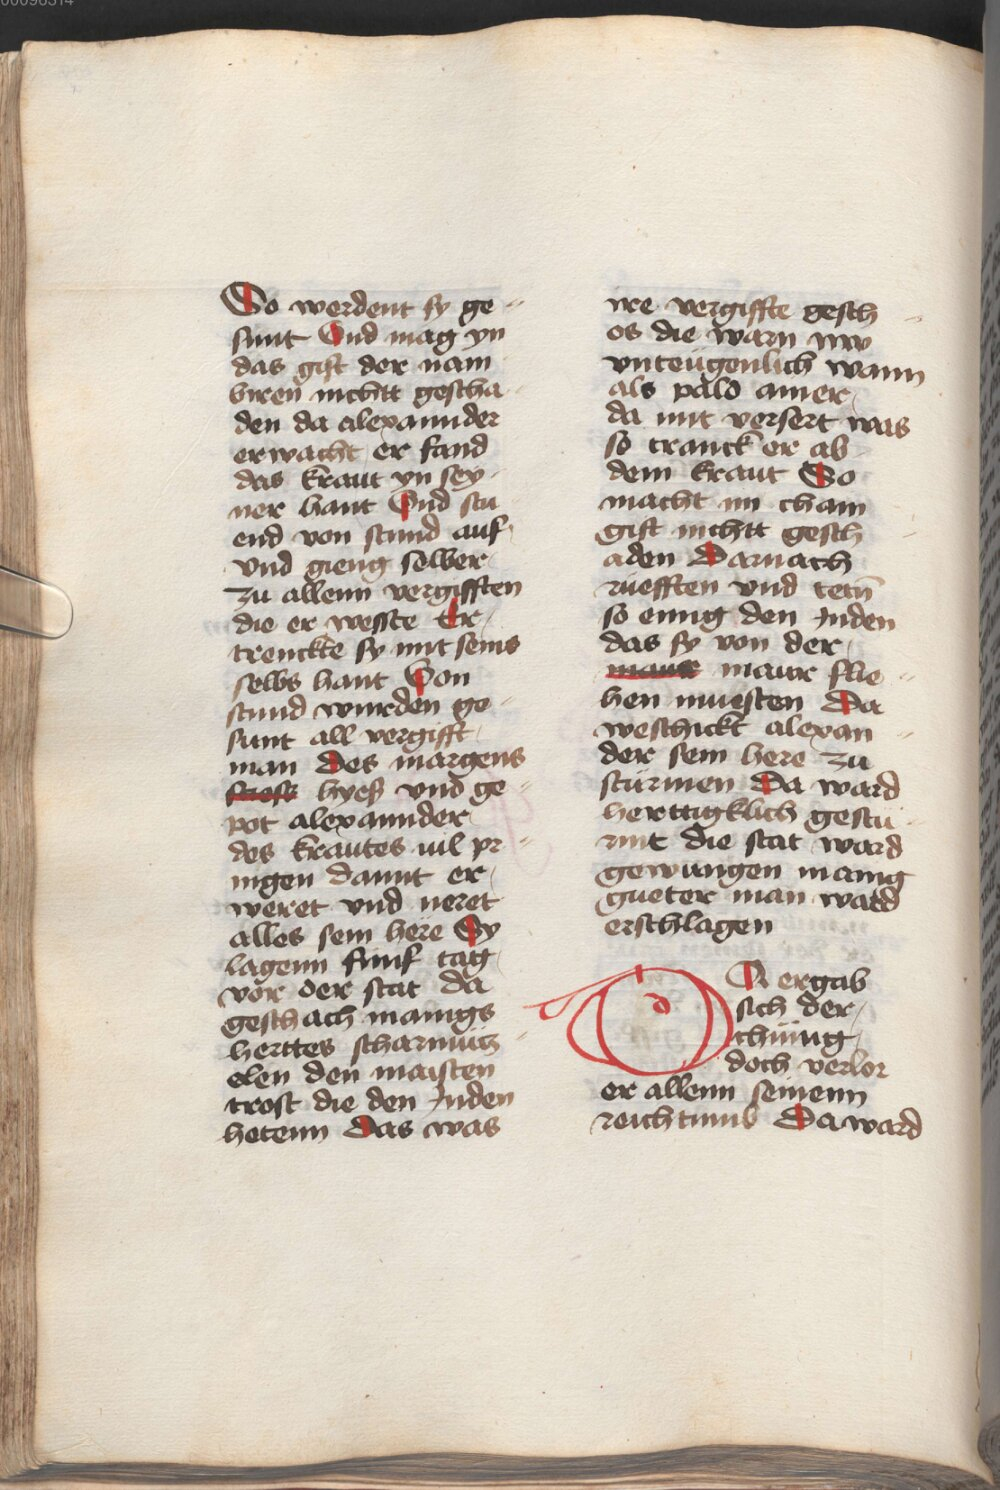 00098314
So werdent sy ge-
sunt Vnd mag yn
das gift der nam
biren nichtt gescha-
den da alexannder
erwacht er fand
das kraut yn sey-
ner hant Vnd stu-
end von stund auf
vnd gieng selber
zu allenn vergifften
die er wesste Er
trenckte sy mit seins
selbs hant Von
stund wurden ge-
sunt all vergifft
man Des margens
hyeß vnd ge-
pot alexannder
des krautes uil pr-
ingen damit er
weret vnd neret
alles sein here Sy
lagenn fünf tag
vor der stat da
geschach manigs
herttes scharmüz
elen den maisten
trost die den Inden
hetenn Das was
ire vergiffte gesch-
os die warn nw
vnteugenlich wann
als pald ainer
da mit versert was
so tranck er ab
dem kraut So
macht im chain
gift nichtt gesch-
aden Darnach
ruefften vnd tetn
so einig den Inden
das sy von der
maur maur flie-
hen muesten Da
weschickt alexan-
der sein here zu
stürmen Da ward
herttigklich gestü-
rmt die stat ward
gewungen manig
gueter man ward
erschlagen
d
A ergab
sich der
chünig
doch verlor
er allenn seinenn
reichtumb Da ward